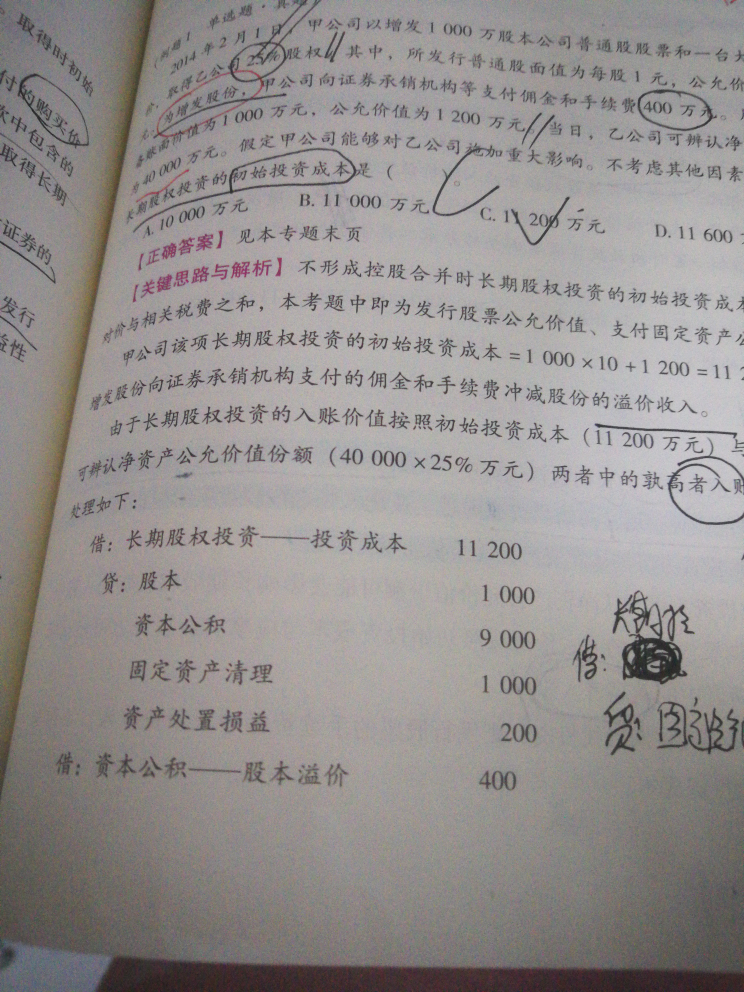 取得时初始
(例题1 单选题·真题
2014年2月1日,甲公司以增发1 000万股本公司普通股股票和一台大
付的购买价
价,取得乙公司25%股权,其中,所发行普通股面值为每股1元,公允价
元,为增发股份,甲公司向证券承销机构等支付佣金和手续费400万元。
款中包含的
备账面价值为1 000万元,公允价值为1 200万元,当日,乙公司可辨认净
取得长期
为40 000万元。假定甲公司能够对乙公司施加重大影响。不考虑其他因素
长期股权投资的初始投资成本是( )。
A. 10 000万元 B. 11 000万元 C. 11 200万元 D. 11 600
证券的
【正确答案】见本专题末页
【关键思路与解析】不形成控股合并时长期股权投资的初始投资成本
发行
对价与相关税费之和,本考题中即为发行股票公允价值、支付固定资产公
益性
甲公司该项长期股权投资的初始投资成本=1 000×10+1 200=11 2
增发股份向证券承销机构支付的佣金和手续费冲减股份的溢价收入。
由于长期股权投资的入账价值按照初始投资成本(11 200万元)与
可辨认净资产公允价值份额(40 000×25%万元)两者中的孰高者入账
处理如下:
借:长期股权投资——投资成本 11 200
贷:股本 1 000
资本公积 9 000
固定资产清理 1 000
资产处置损益 200
借:资本公积——股本溢价 400
长期股
借:
贷:固定